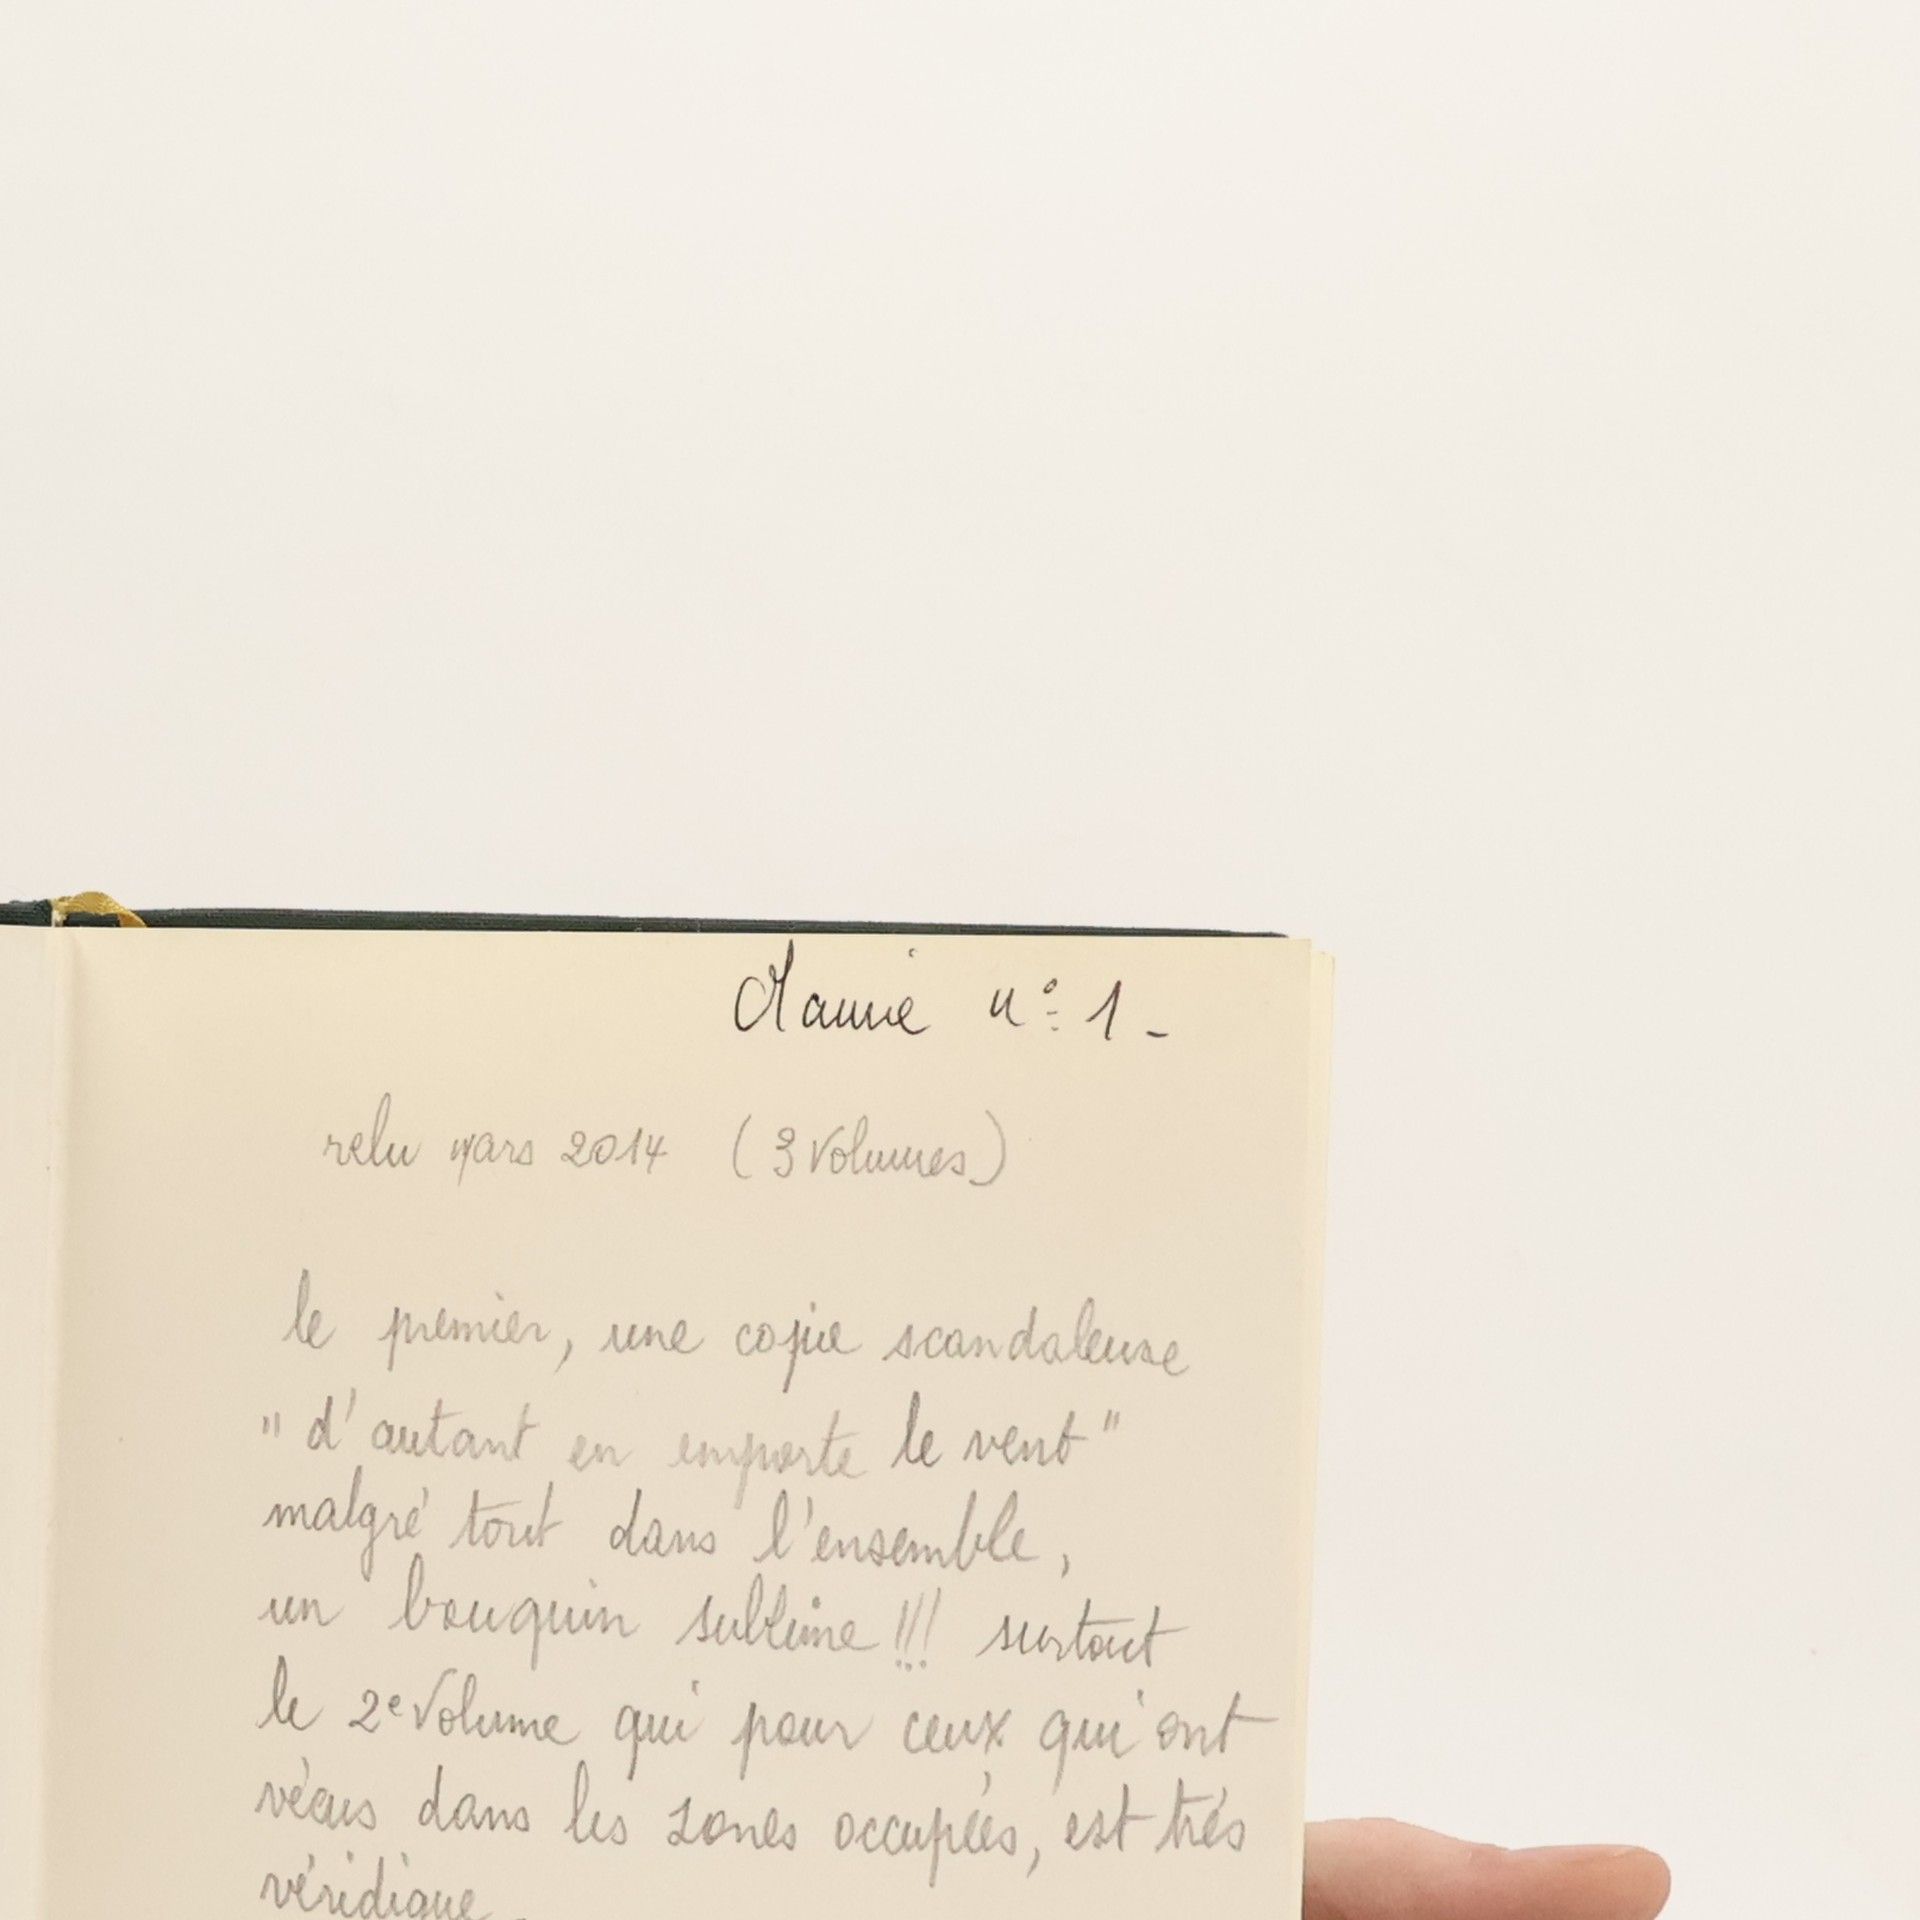 Mamie n° 1 -
relu mars 2014 (3 Volumes)
le premier, une copie scandaleuse
" d'autant en emporte le vent "
malgré tout dans l'ensemble,
un bouquin sublime !!! surtout
le 2e Volume qui pour ceux qui ont
vécus dans les zones occupées, est très
véridique.